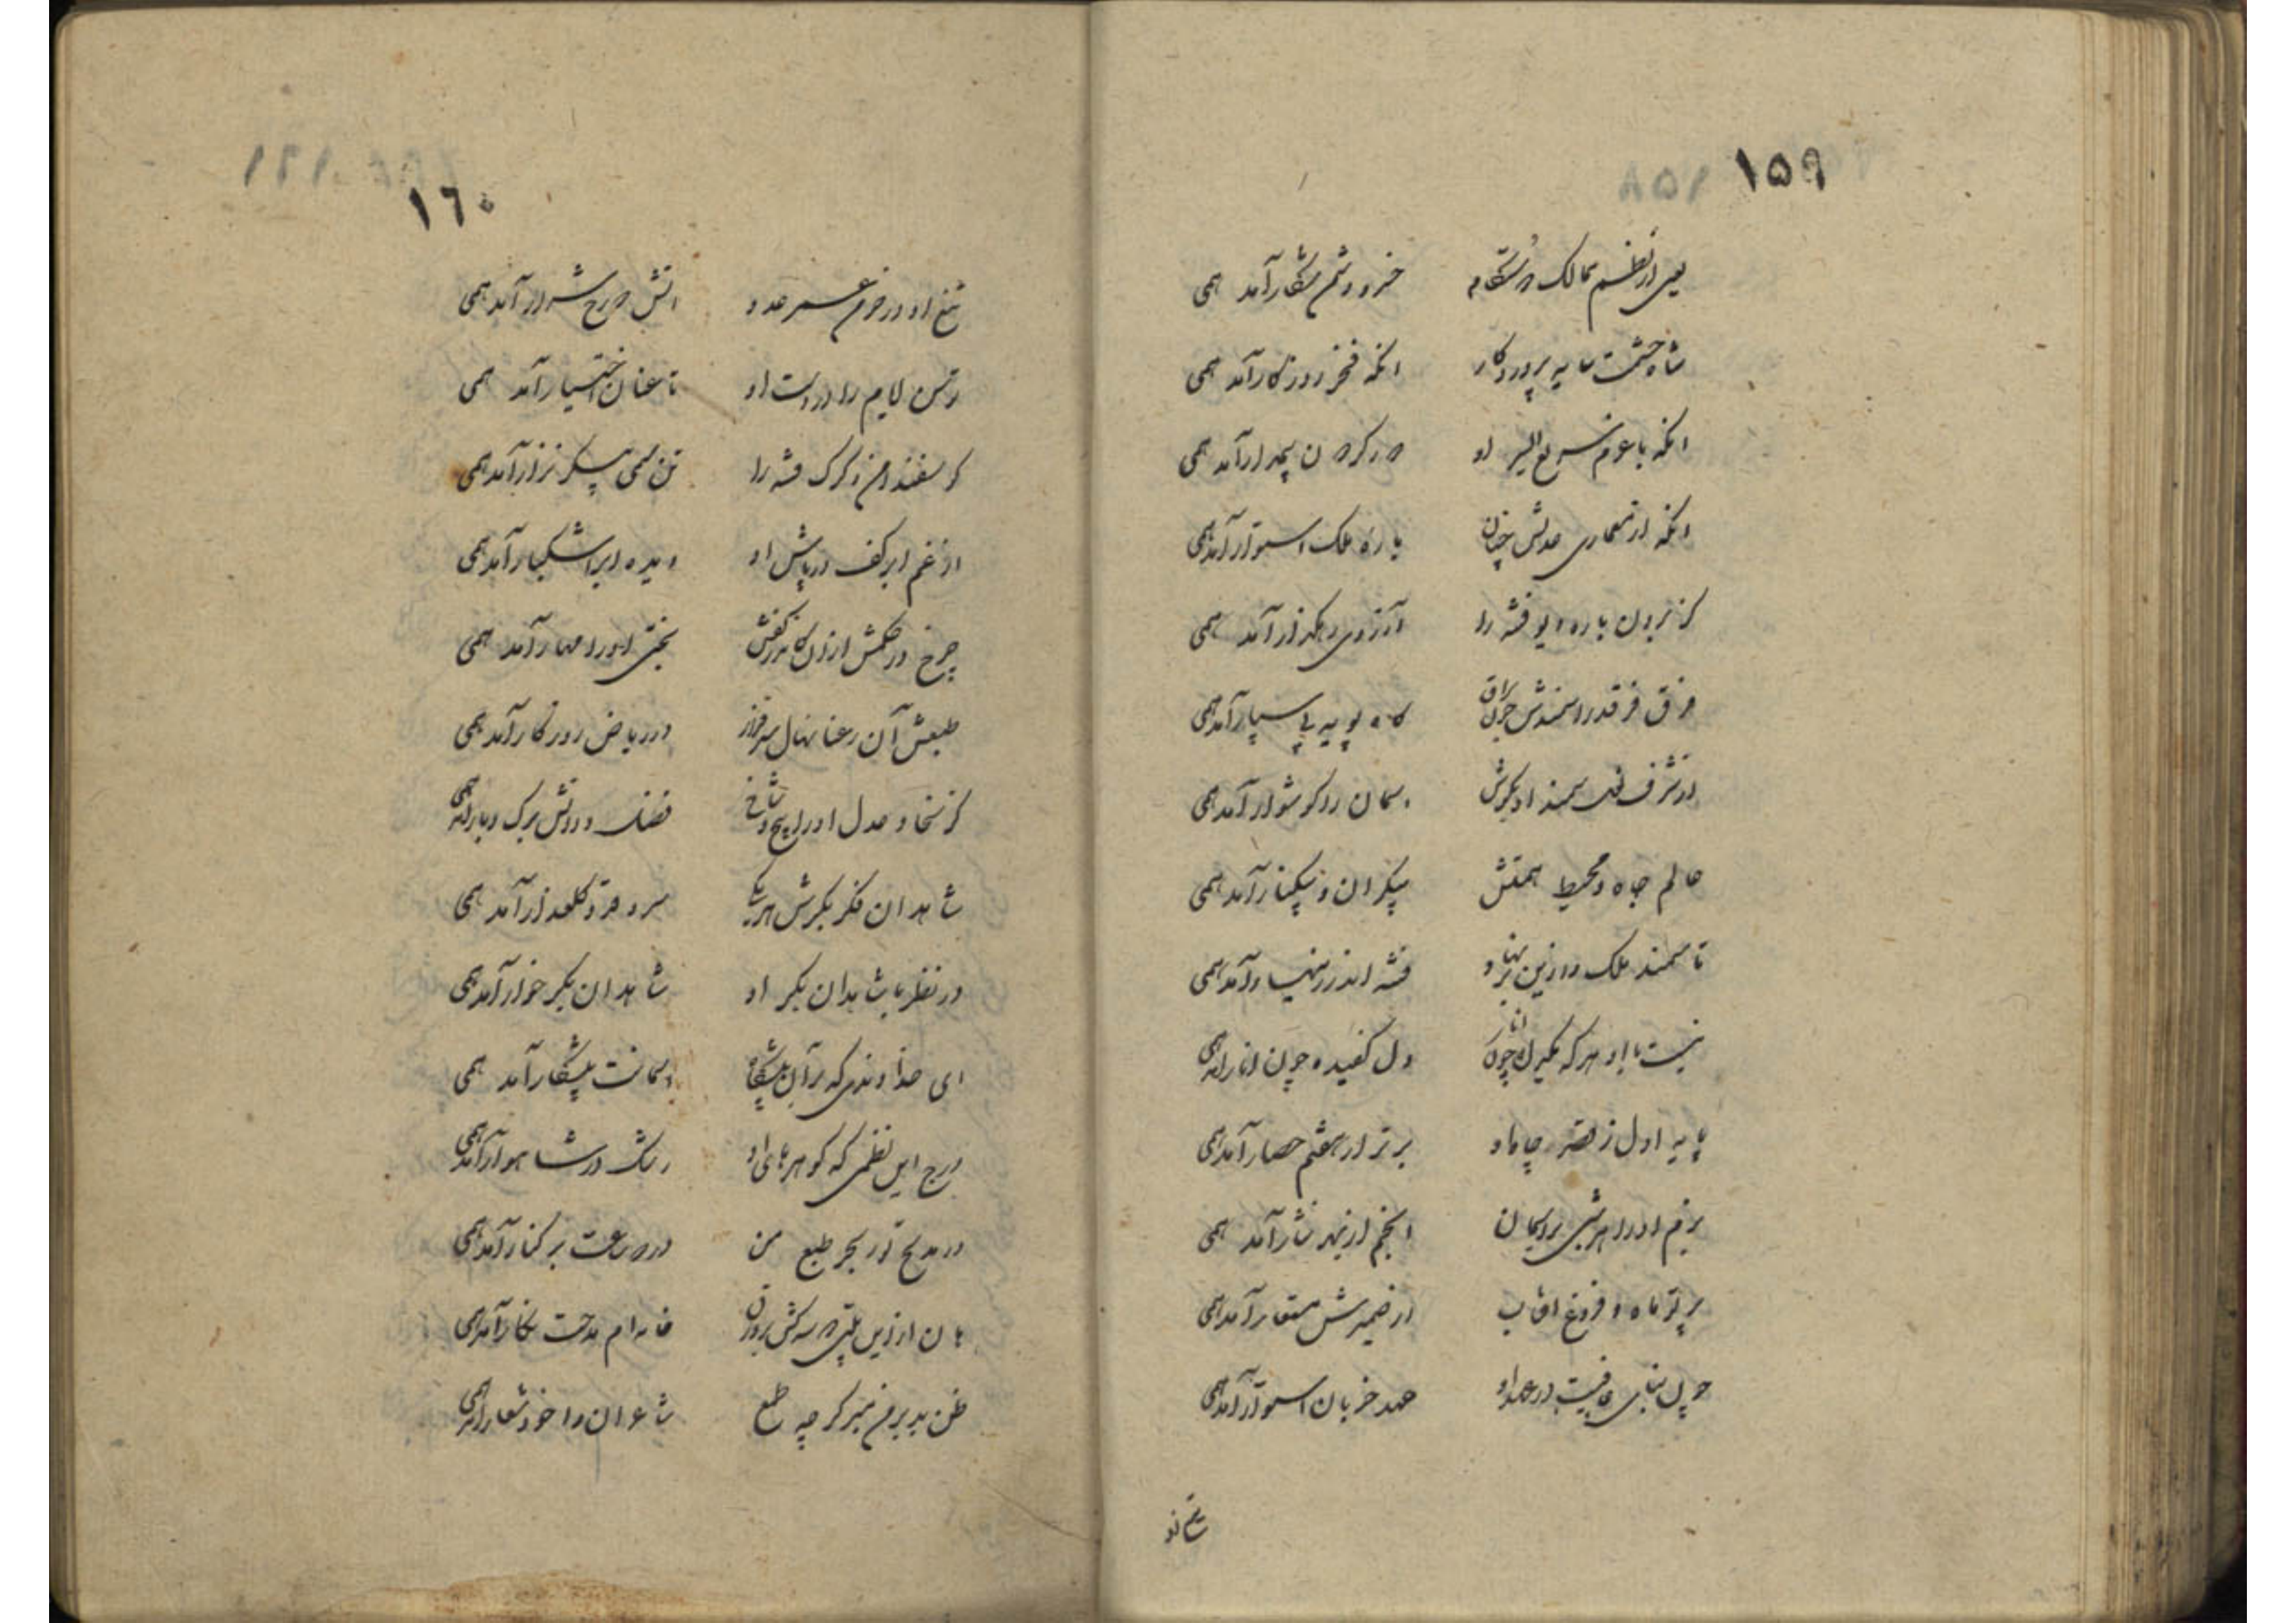 ۱۵۹
یعنی از نظم ممالک
خسرو آمد همی
شاه حشمت سایه پروردگار
انکه فخر روزکار آمد همی
انکه با عزم سریع السیر او
در کردن آمد همی
انکه از معماری عدلش چنان
باره ملک استوار آمد همی
کز برون باره دیو فتنه را
آرزوی رهکذار آمد همی
فرق فرقد را سمندش
کاه پویه پی سپار آمد همی
از شرف سمند او
اسمان را کوشوار آمد همی
عالم جاه و محیط همتش
بیکران و بیکنار آمد همی
تا سمند ملک را زین بر نهاد
فتنه اندر زینهار آمد همی
نیست با او هر که یکدل چون انار
دل کفیده چون انار آمد همی
پایه اول ز قصر جاه او
برتر از هفتم حصار آمد همی
بزم او را هر شبی بر اسمان
انجم از بهر نثار آمد همی
پرتو ماه و فروغ افتاب
از ضمیرش مستعار آمد همی
چون بنای عافیت در عهد او
عهد خوبان استوار آمد همی
تیغ او
۱۶۰
تیغ او در خرمن عمر عدو
اتش دوزخ شرار آمد همی
توسن ایام را در دست او
تا عنان اختیار آمد همی
کوسفند امن و کرک فتنه را
تن سمین پیکر نزار آمد همی
از غم ابر کف درپاش او
دیده ابر اشکبار آمد همی
چرخ در حکمش از آن
بختی او را مهار آمد همی
طبعش آن رعنا نهال سرفراز
در ریاض روزکار آمد همی
کز سخا و عدل او را بیخ و شاخ
فضل و دانش برک و بار آمد همی
شاهدان فکر بکرش هر یکی
سرو قد و کلعذار آمد همی
در نظر با شاهدان بکر او
شاهدان بکر خوار آمد همی
ای خداوندی که بر آن پیشکاه
اسمانت پیشکار آمد همی
درج این نظمی که کوهرهای او
رشک در شاهوار آمد همی
در مدیح تو ز بحر طبع من
در دو ساعت بر کنار آمد همی
هان از این
خامه ام مدحت نکار آمد همی
ظن بد بر من مبر کر چه طمع
شاعران را خود شعار آمد همی